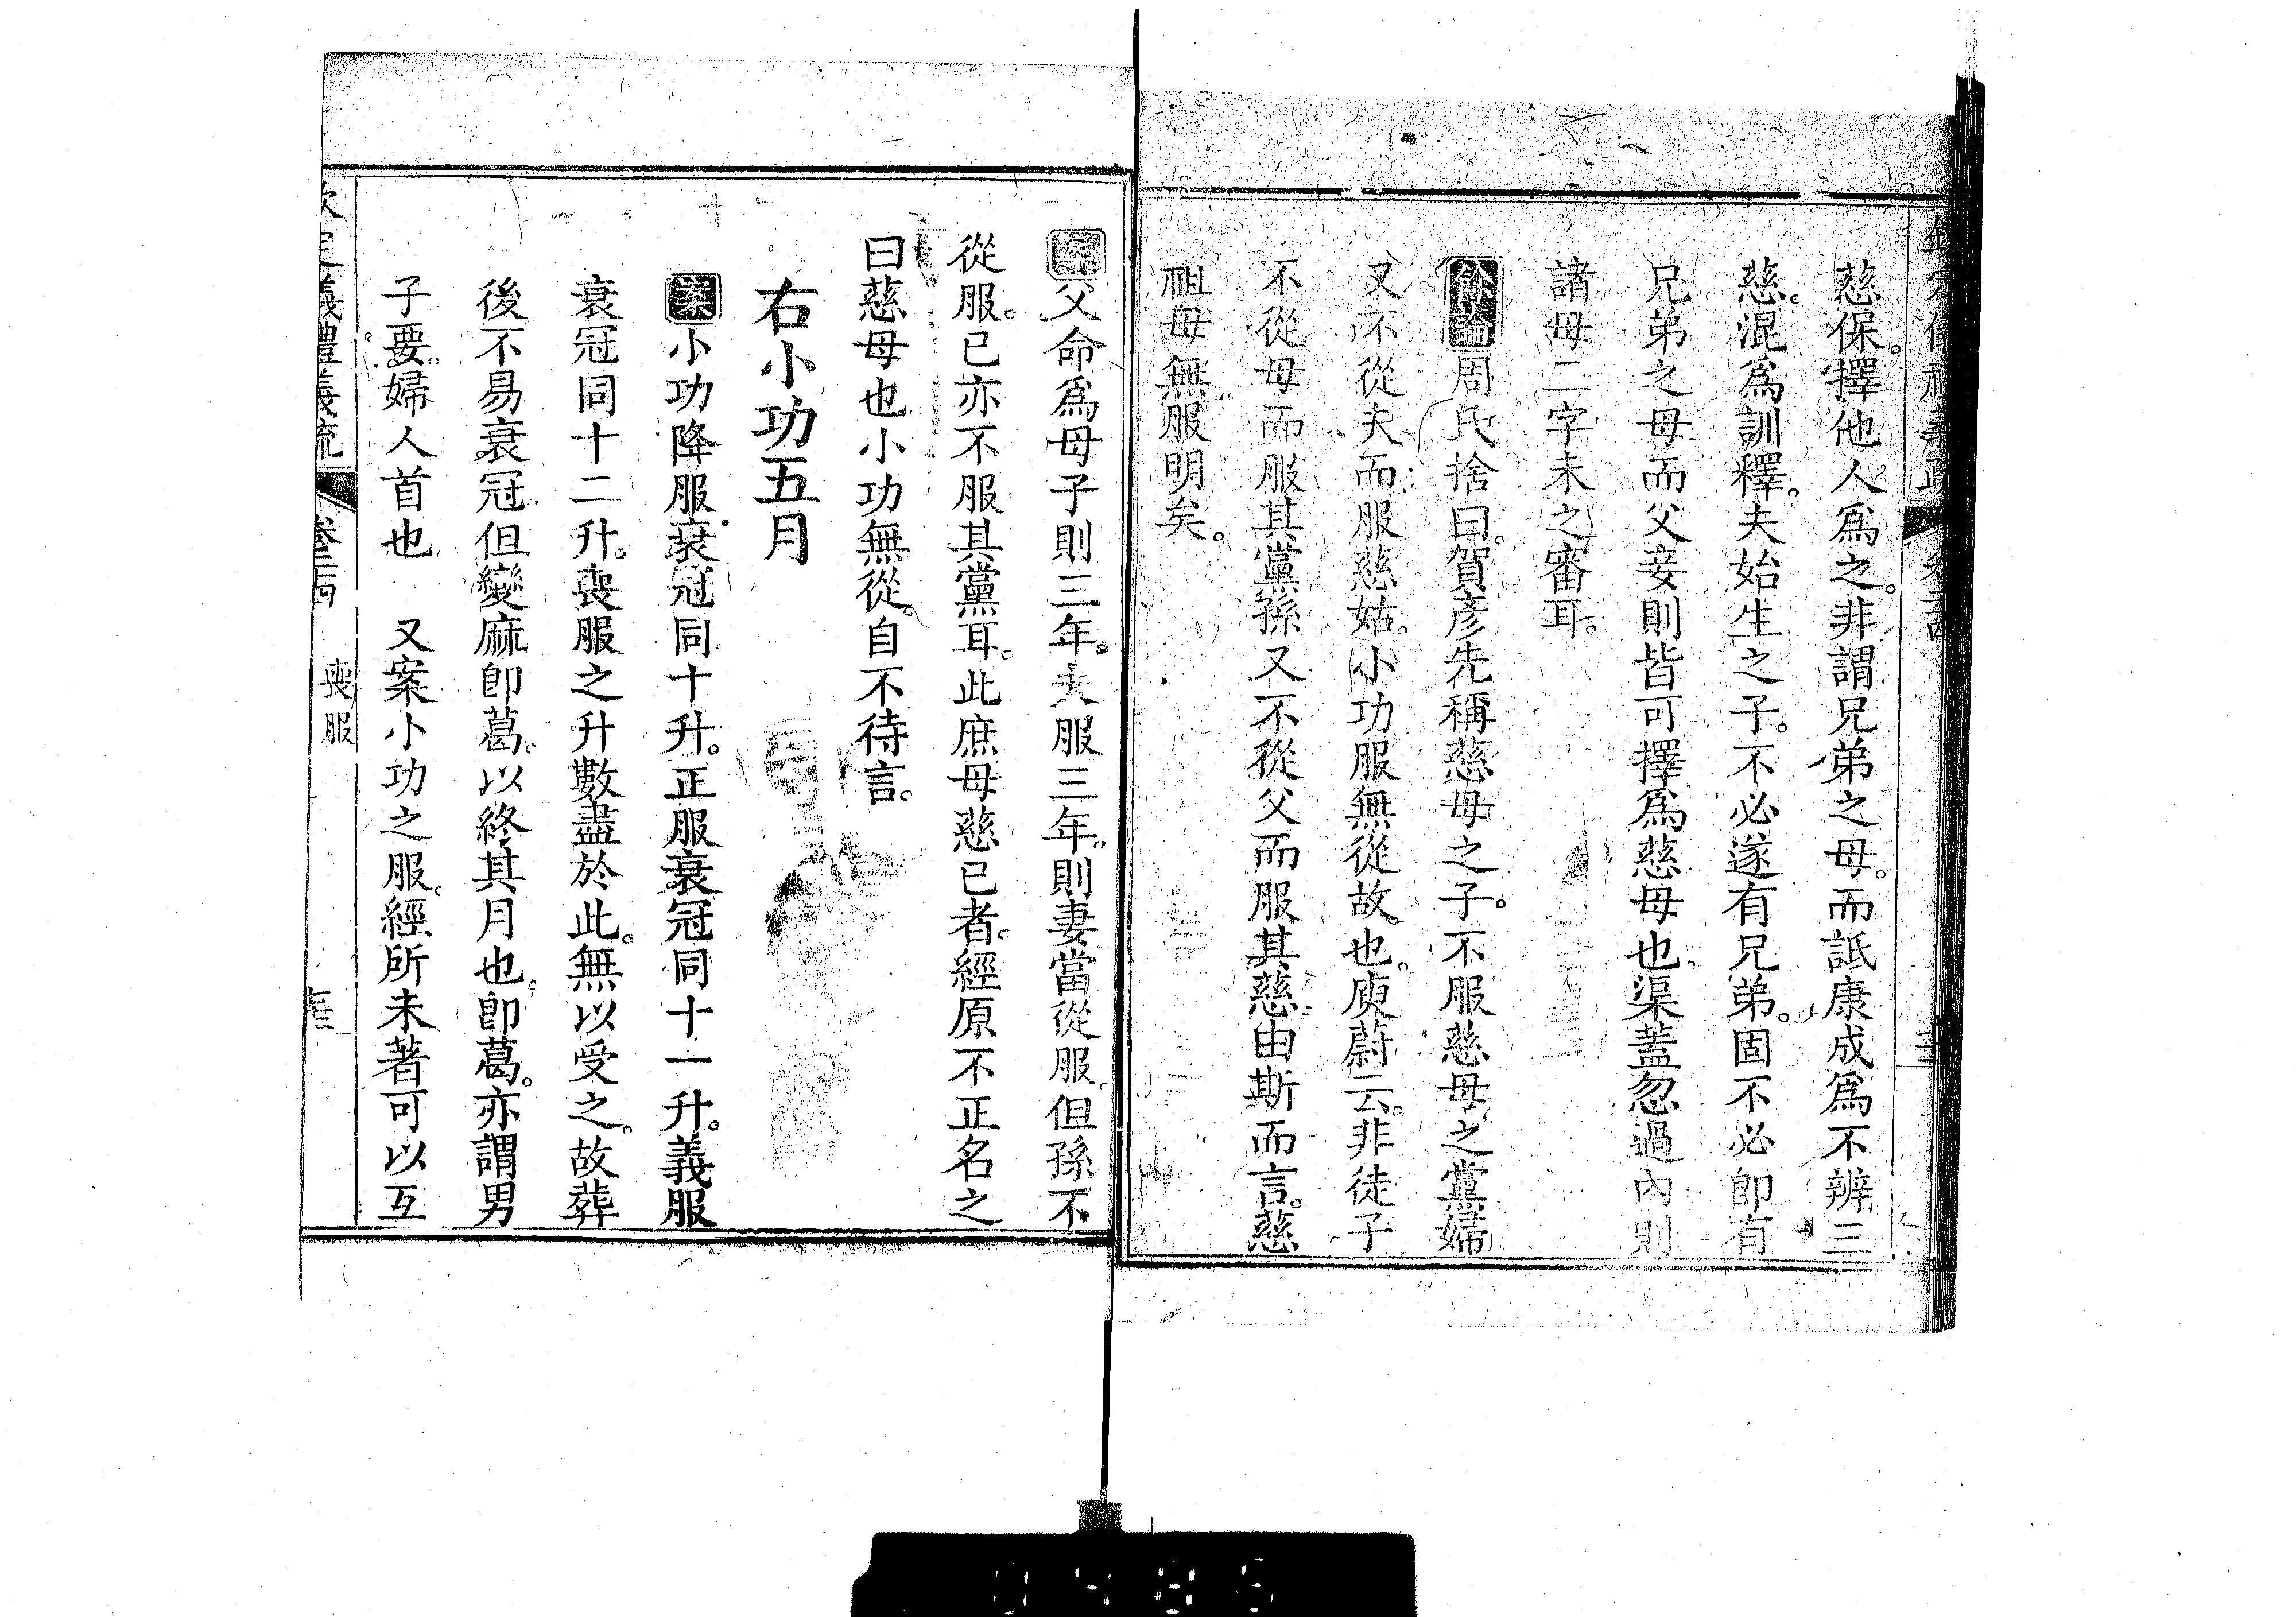 慈保。擇他人爲之。非謂兄弟之母。而詆康成爲不辨三
慈。混爲訓釋。夫始生之子。不必遂有兄弟。固不必卽有
兄弟之母而父妾則皆可擇爲慈母也。渠蓋忽過內則
諸母二字未之審耳。
餘論周氏捨曰。賀彥先稱慈母之子。不服慈母之黨婦
又不從夫而服慈姑。小功服無從故也。庾蔚云。非徒子
不從母而服其黨孫又不從父而服其慈。由斯而言。慈
祖母無服明矣。
案父命爲母子則三年。夫服三年。則妻當從服。但孫不
從服。已亦不服其黨耳。此庶母慈已者。經原不正名之
曰慈母也小功無從。自不待言。
右小功五月
案小功降服衰冠同十升。正服衰冠同十一升。義服
衰冠同十二升。喪服之升數盡於此。無以受之。故葬
後不易衰冠。但變麻卽葛。以終其月也。卽葛。亦謂男
子要。婦人首也 又案小功之服。經所未著可以互
欽定義禮義疏 卷二十四 喪服